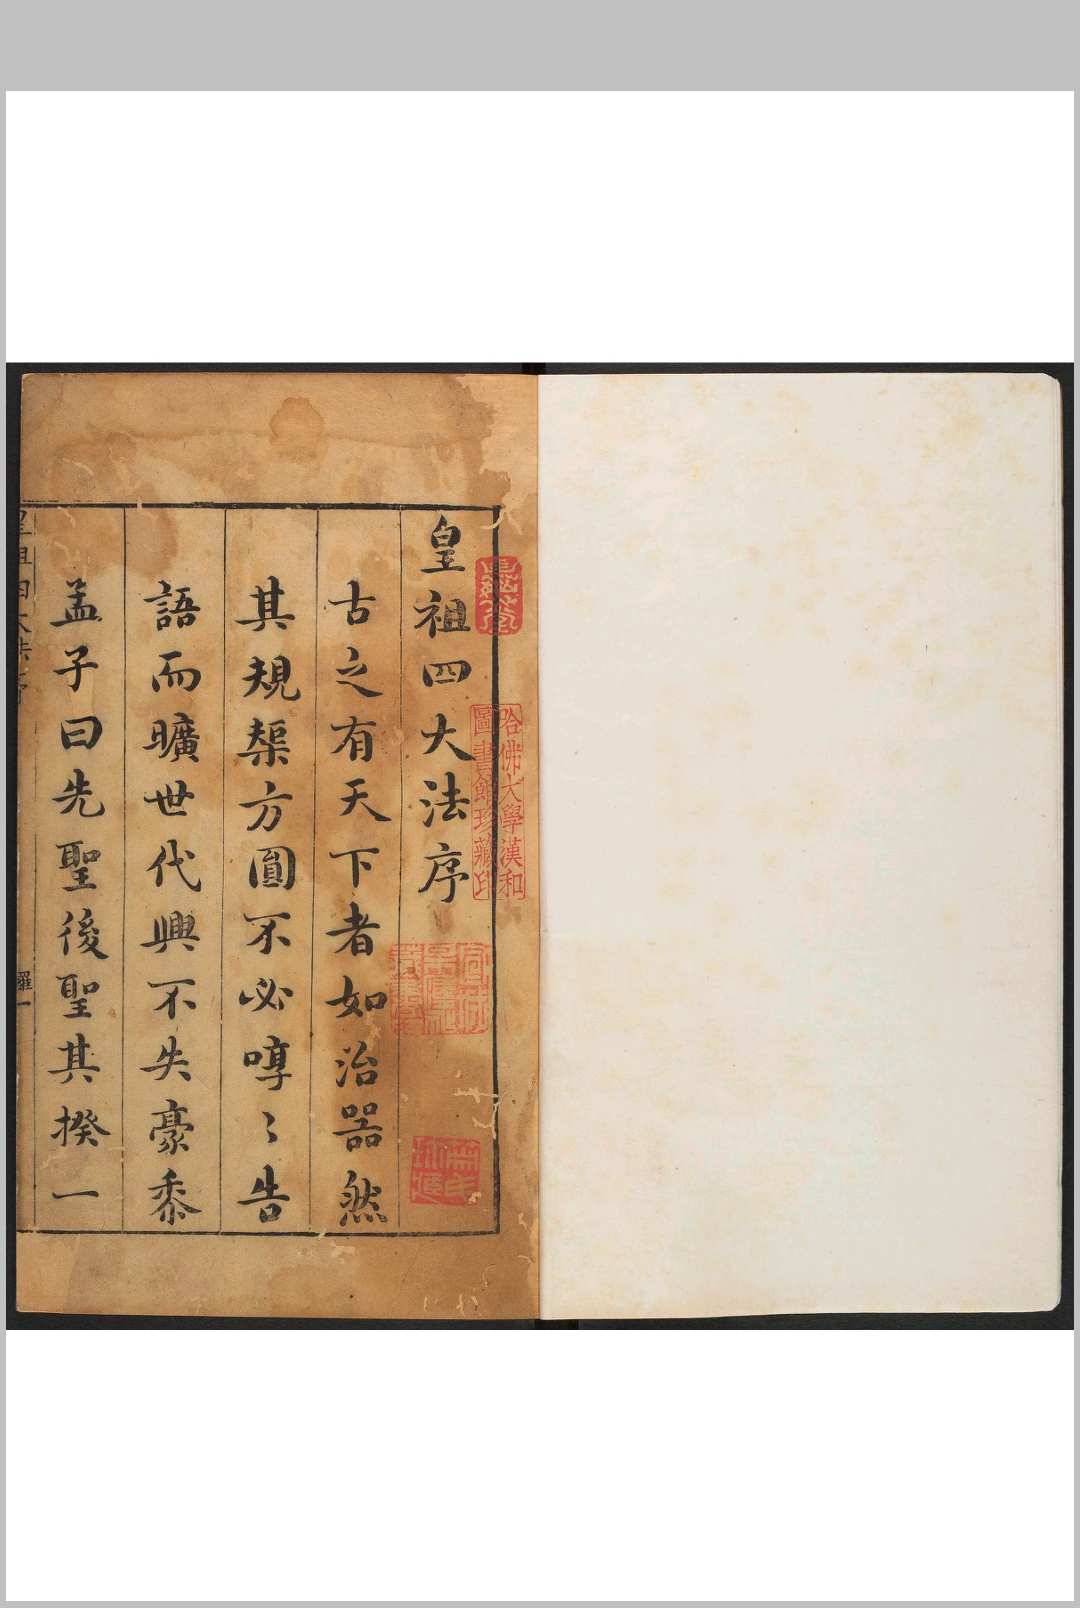 皇祖四大法序
古之有天下者如治器然
其規榘方圓不必啍〻告
語而曠世代興不失豪黍
孟子曰先聖後聖其揆一
哈佛大學漢和
圖書館珍藏印